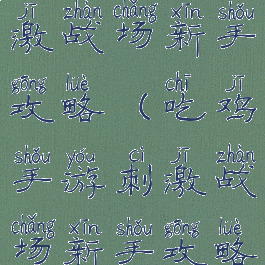 jī zhàn chǎng xīn shǒu
激战场新手
gōng lüè chī jī
攻略(吃鸡
shǒu yóu cì jī zhàn
手游刺激战
chǎng xīn shǒu gōng lüè
场新手攻略